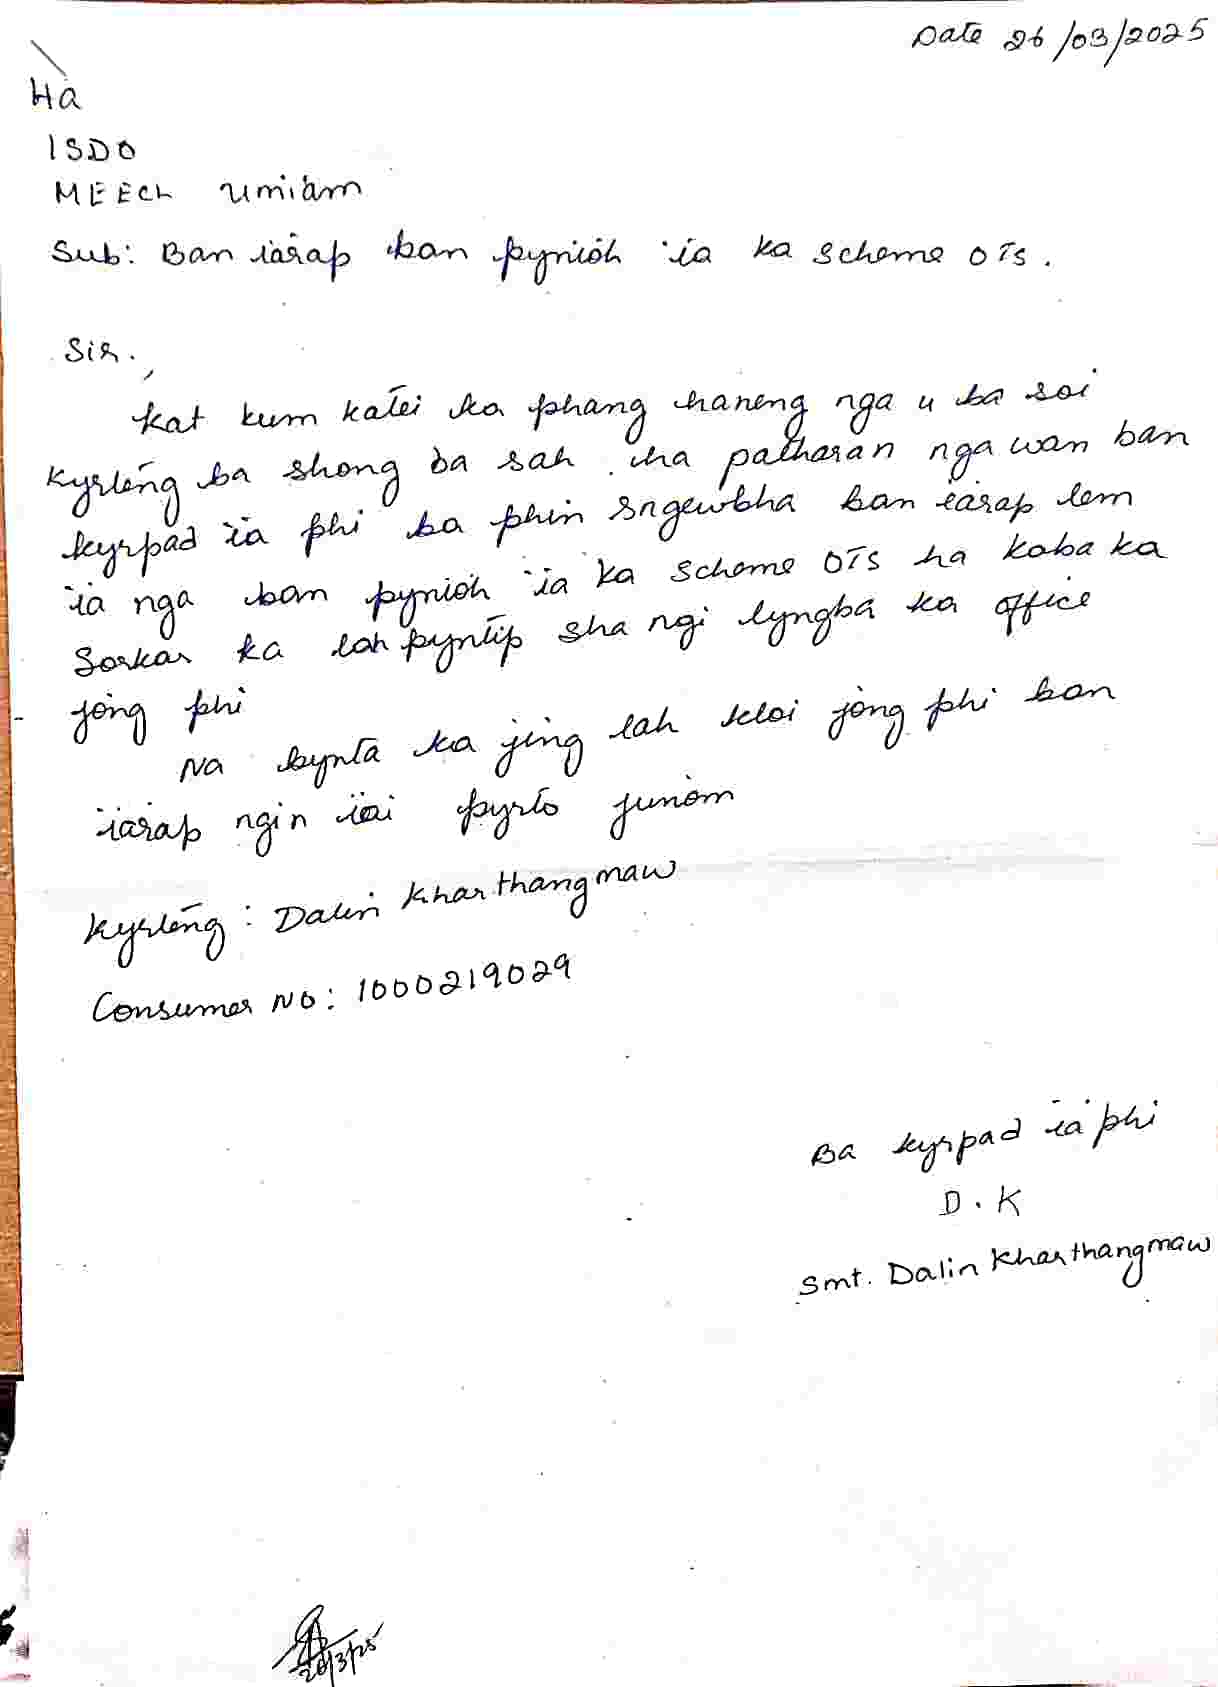 Date 26/03/2025
Ha
ISDO
MEECL Umiam
Sub: Ban ïarap ban pynïoh ïa ka scheme OTS.
Sir.,
Kat kum katei ka phang haneng nga u ba soi
Kyrteng ba shong ba sah ha patharan nga wan ban
kyrpad ïa phi ba phin sngewbha ban ïarap lem
ïa nga ban pynïoh ïa ka scheme OTS ha kaba ka
Sorkar ka lah pyntip sha ngi lyngba ka office
jong phi
Na bynta ka jing lah kloi jong phi ban
ïarap ngin ïai pyrto junom
Kyrteng: Dalin Kharthangmaw
Consumer No: 1000219029
Ba kyrpad ïa phi
D.K
Smt. Dalin Kharthangmaw
26/3/25